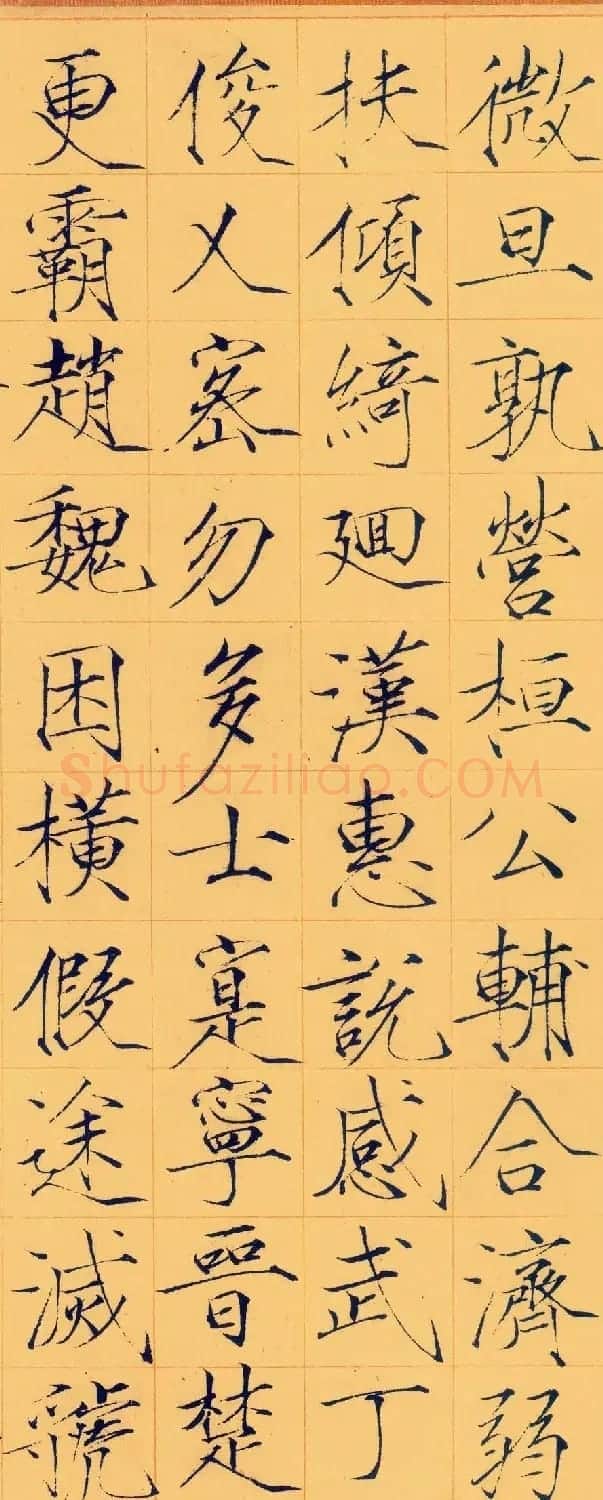 微旦孰營桓公輔合濟弱
扶傾綺廻漢惠説感武丁
俊乂密勿多士寔寧晉楚
更霸趙魏困橫假途滅虢
Shufaziliao.COM